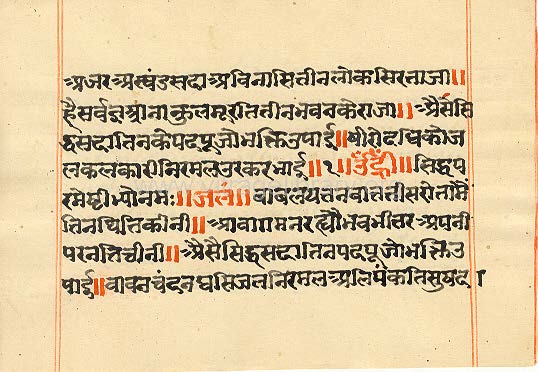 अजरअखंडसदाअविनासितीनलोकसिरताजा॥
हैसर्वज्ञअनाकुलमूरतितीनभवनकेराजा॥ऐसैसि
द्धसदातिनकेपदपूजोभक्तिउपाई॥षीरोदधिकोज
लकलकारीनिरमलउरकरभाई॥१॥उँह्रीं॥सिद्धप
रमेष्टीभ्योनमः॥जलं॥
तिनथितिकीनी॥आवागमनरह्योभवभीतरअपनी
परनतिचीनी॥ऐसैसिद्धसदातिनपदपूजोभक्तिउ
पाई॥वावनचंदनघसिजलनिरमलअलिपंकतिसुषदा